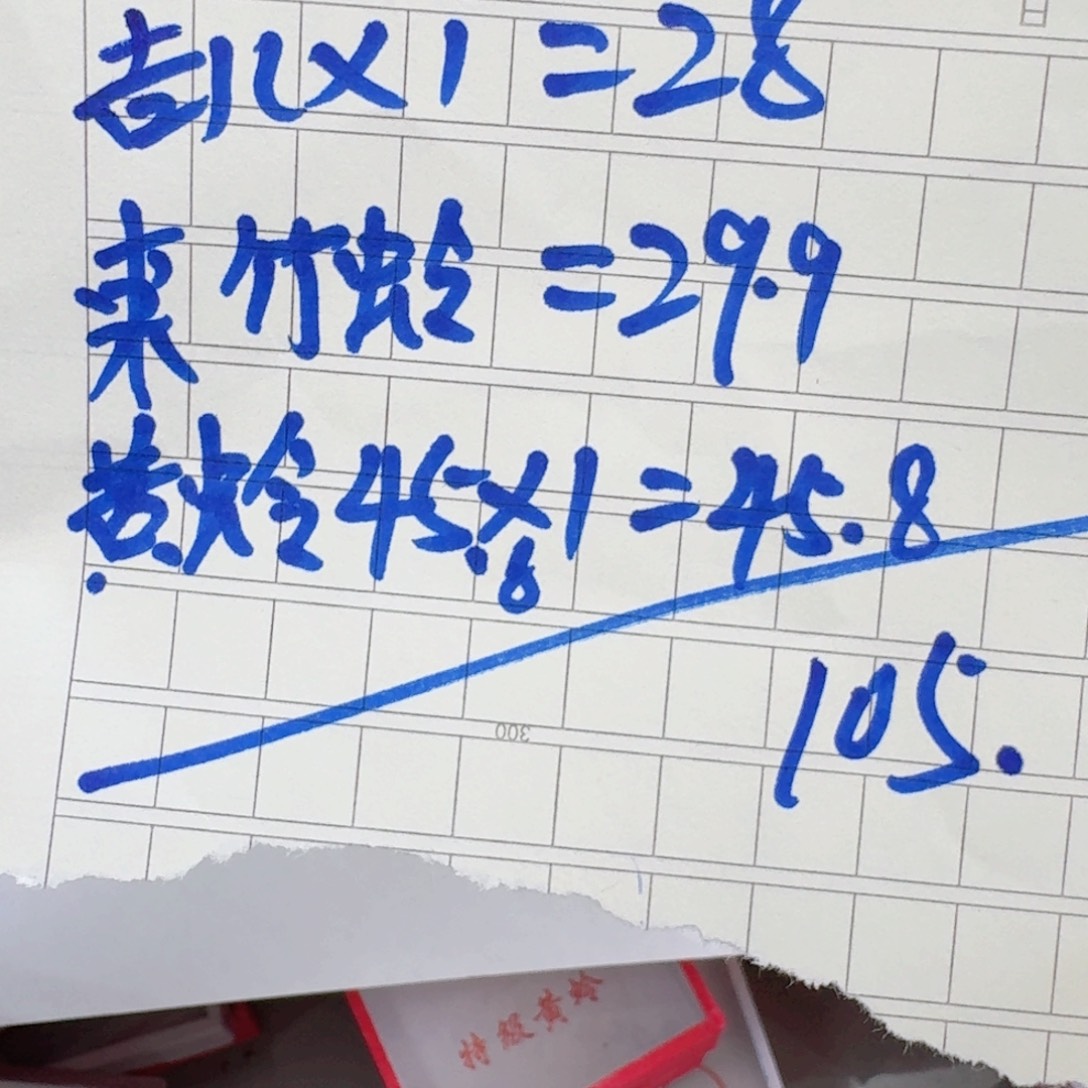 吉儿×1=28
来竹蛉=29.9
黄蛉45.8×1=45.8
105.
300
特级黄蛉